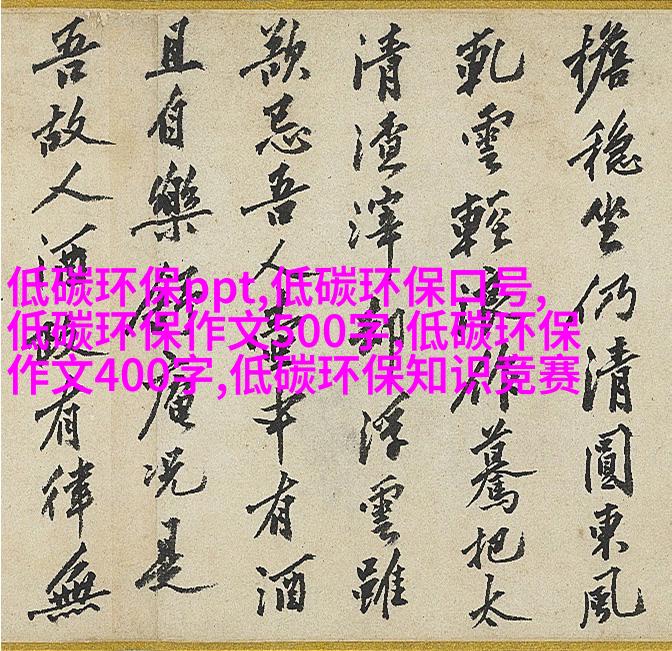 低碳环保ppt,低碳环保口号,
低碳环保作文300字,低碳环保
作文400字,低碳环保知识竞赛
檐穩坐仍清圓東風
軋雲輕作驀把太
清渣滓却浮雲雖
忌吾人幸有酒
且自樂庵况是
吾故人酒政有律無